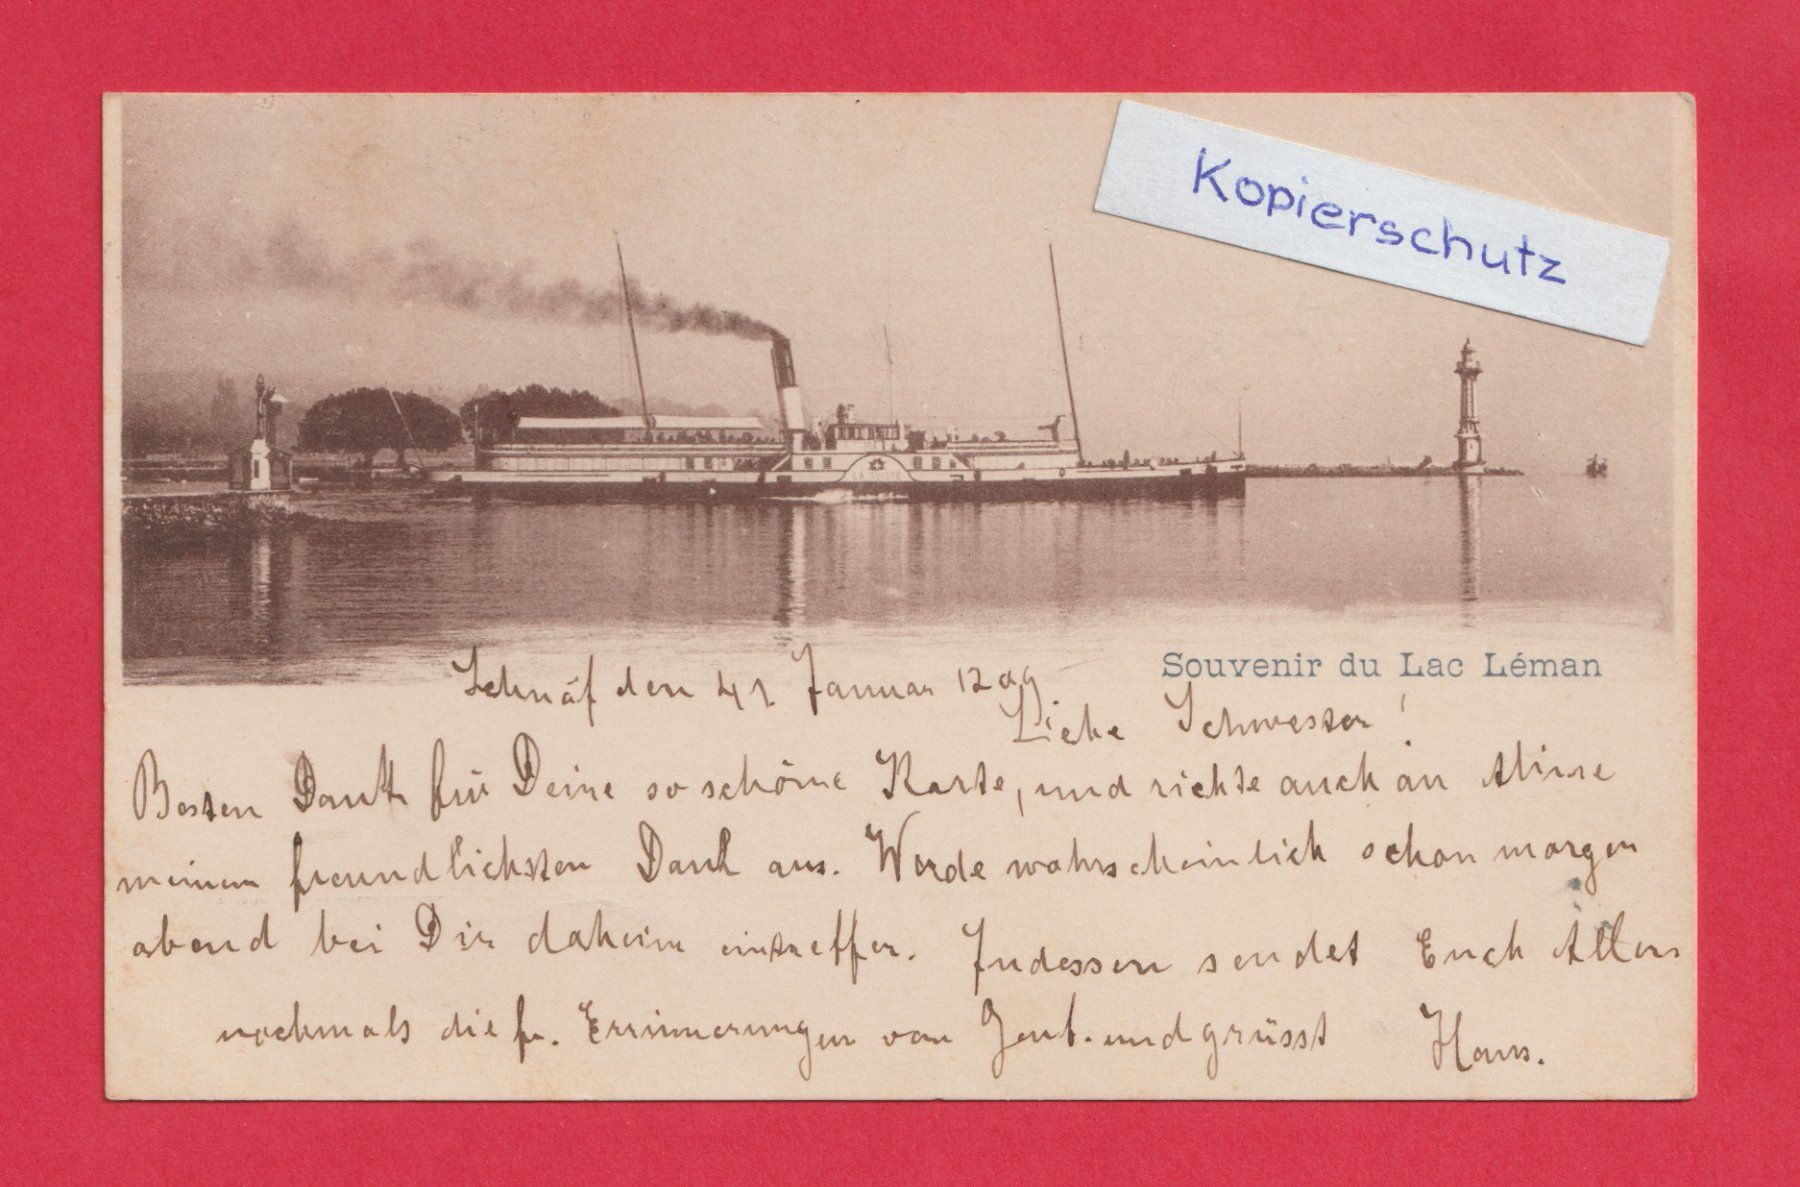 Kopierschutz
Souvenir du Lac Léman
den Januar
Liebe Schwester!
Besten Dank für Deine so schöne Karte, und richte auch an
meinen freundlichsten Dank aus. Werde wahrscheinlich schon morgen
abend bei Dir daheim eintreffen. Indessen sendet Euch Allen
nochmals die fr. Errinnerungen von Genf. und grüsst Hans.